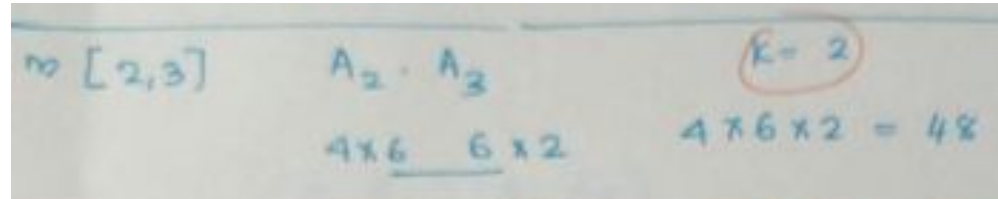 m [2,3] A₂ . A₃ K = 2
4×6 6×2 4×6×2 = 48